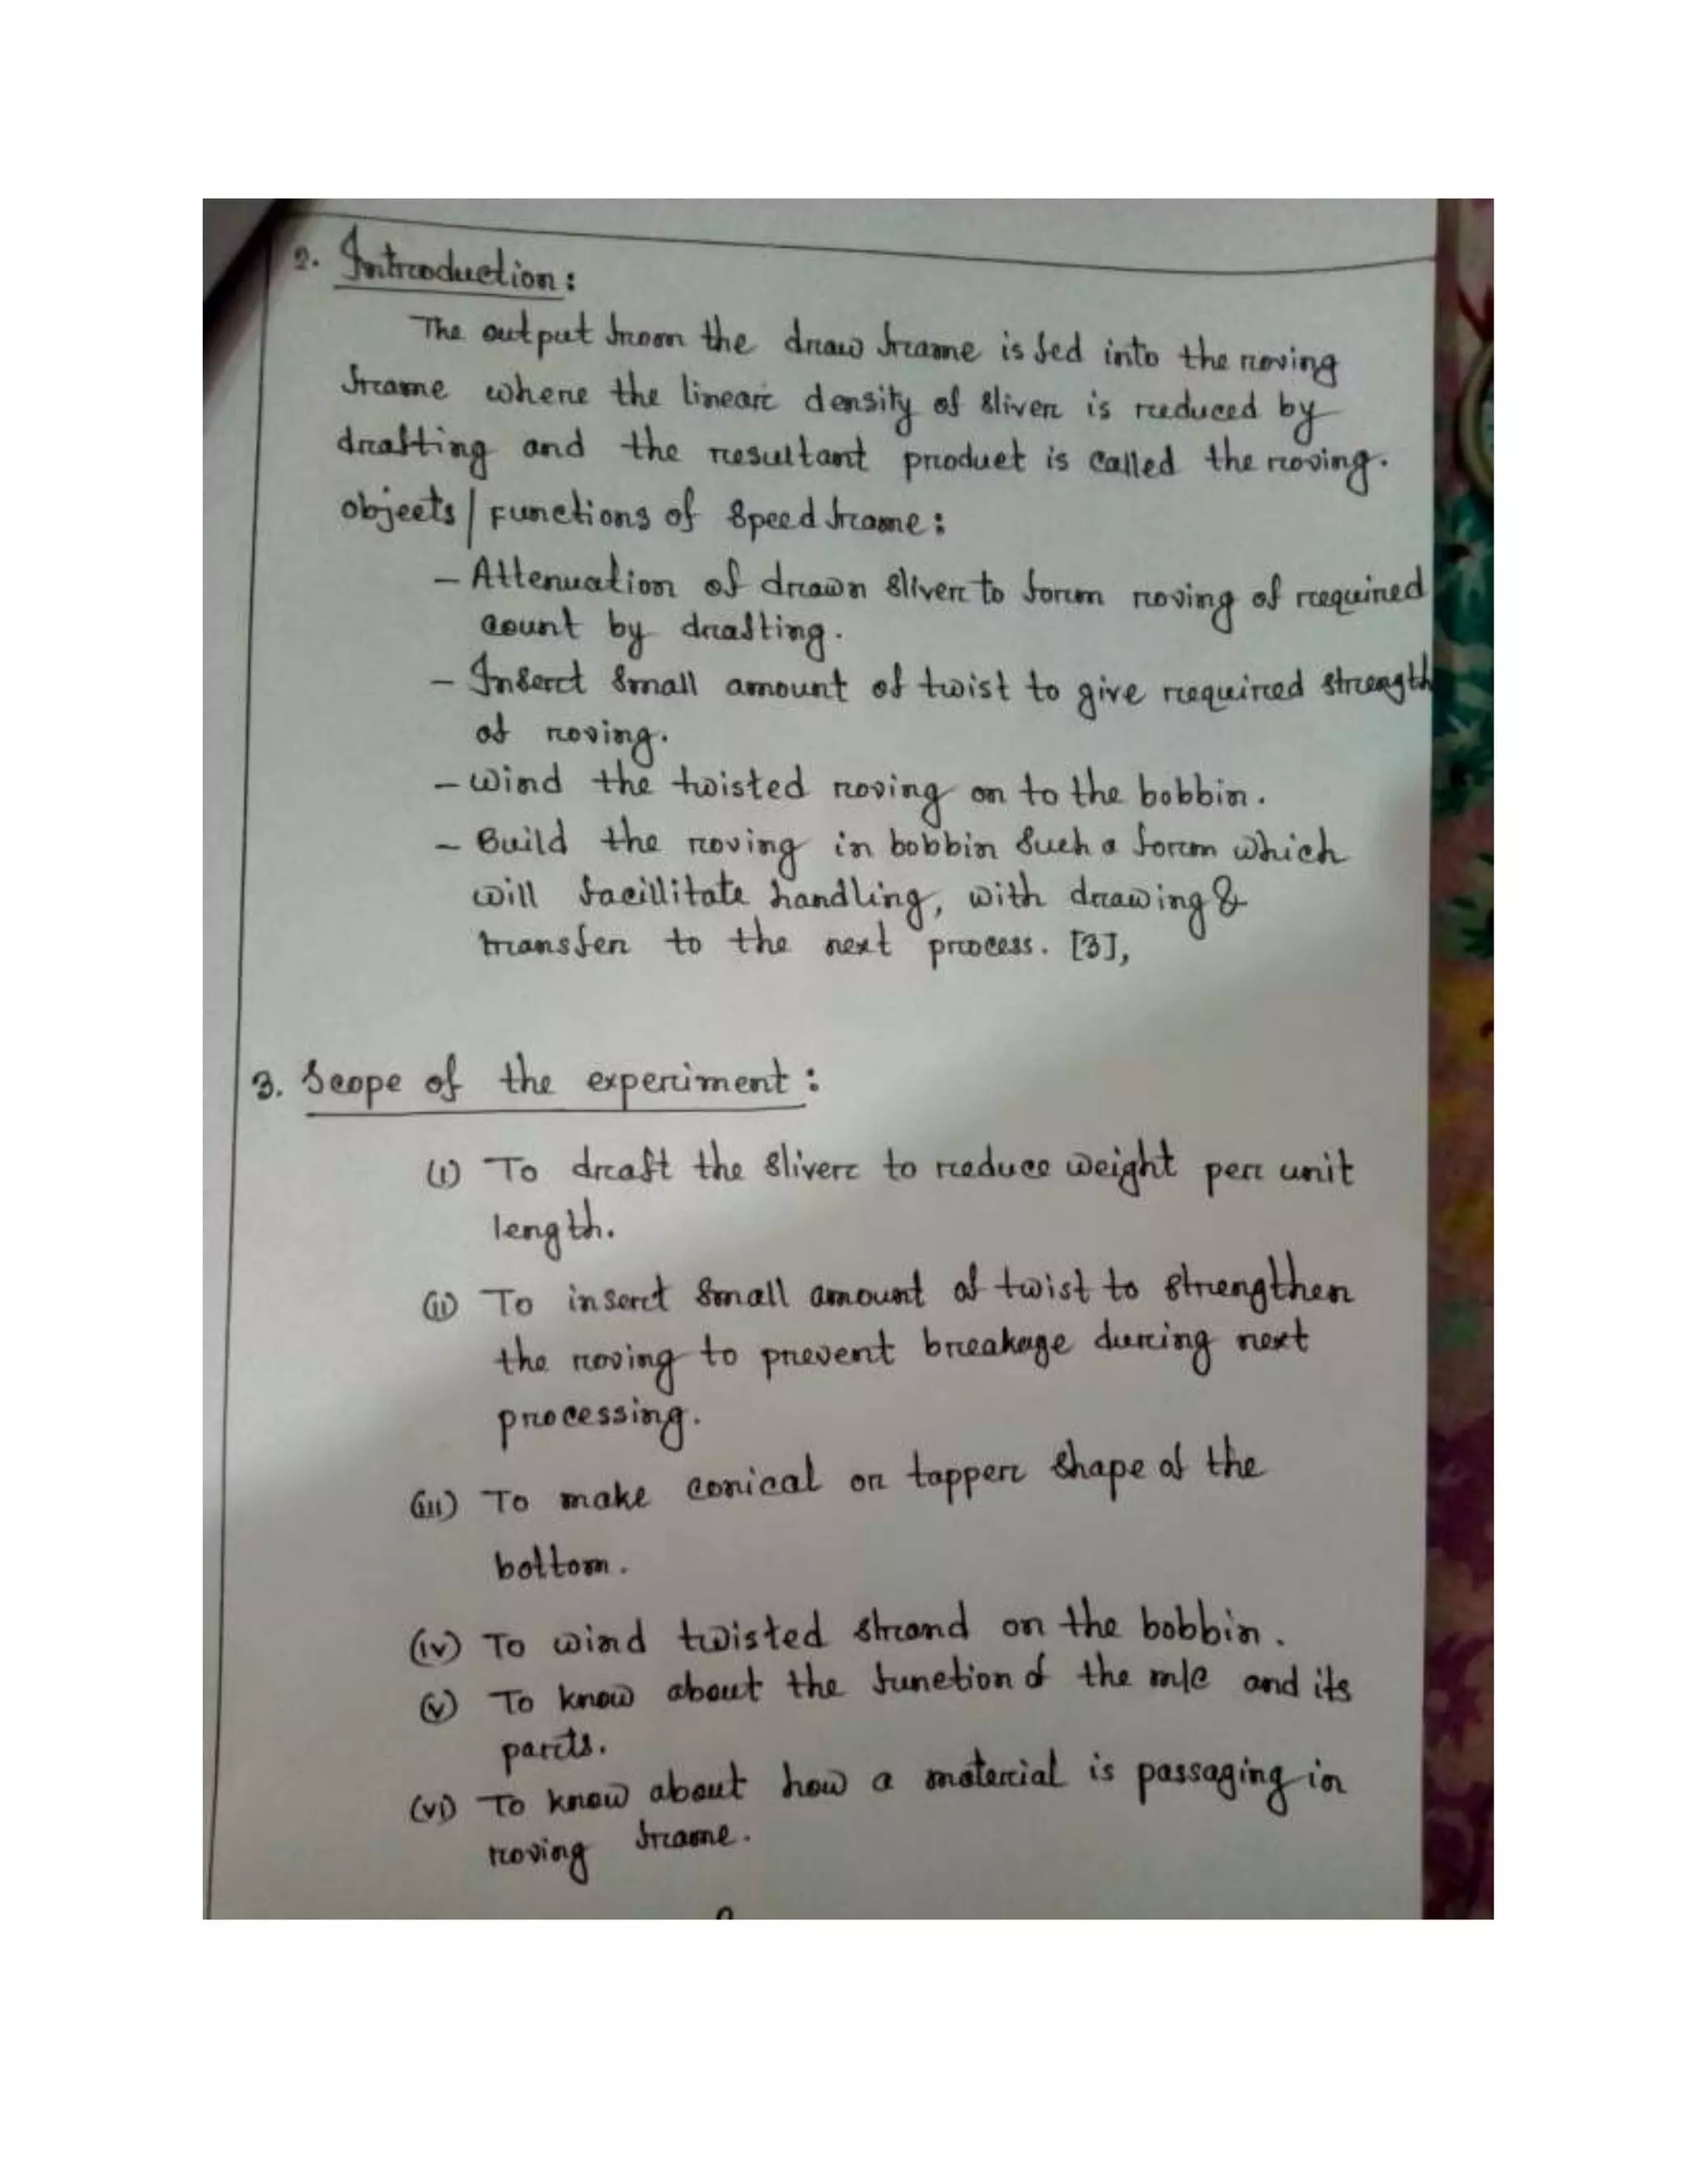 2. Introduction:
The output from the draw frame is fed into the roving
frame where the linear density of sliver is reduced by
drafting and the resultant product is called the roving.
objects / Functions of Speed frame:
- Attenuation of drawn sliver to form roving of required
count by drafting.
- Insert small amount of twist to give required strength
of roving.
- Wind the twisted roving on to the bobbin.
- Build the roving in bobbin such a form which
will facillitate handling, with drawing &
transfer to the next process. [3],
3. Scope of the experiment:
(i) To draft the sliver to reduce weight per unit
length.
(ii) To insert small amount of twist to strengthen
the roving to prevent breakage during next
processing.
(iii) To make conical or tapper shape of the
bottom.
(iv) To wind twisted strand on the bobbin.
(v) To know about the function of the m/c and its
parts.
(vi) To know about how a material is passaging in
roving frame.